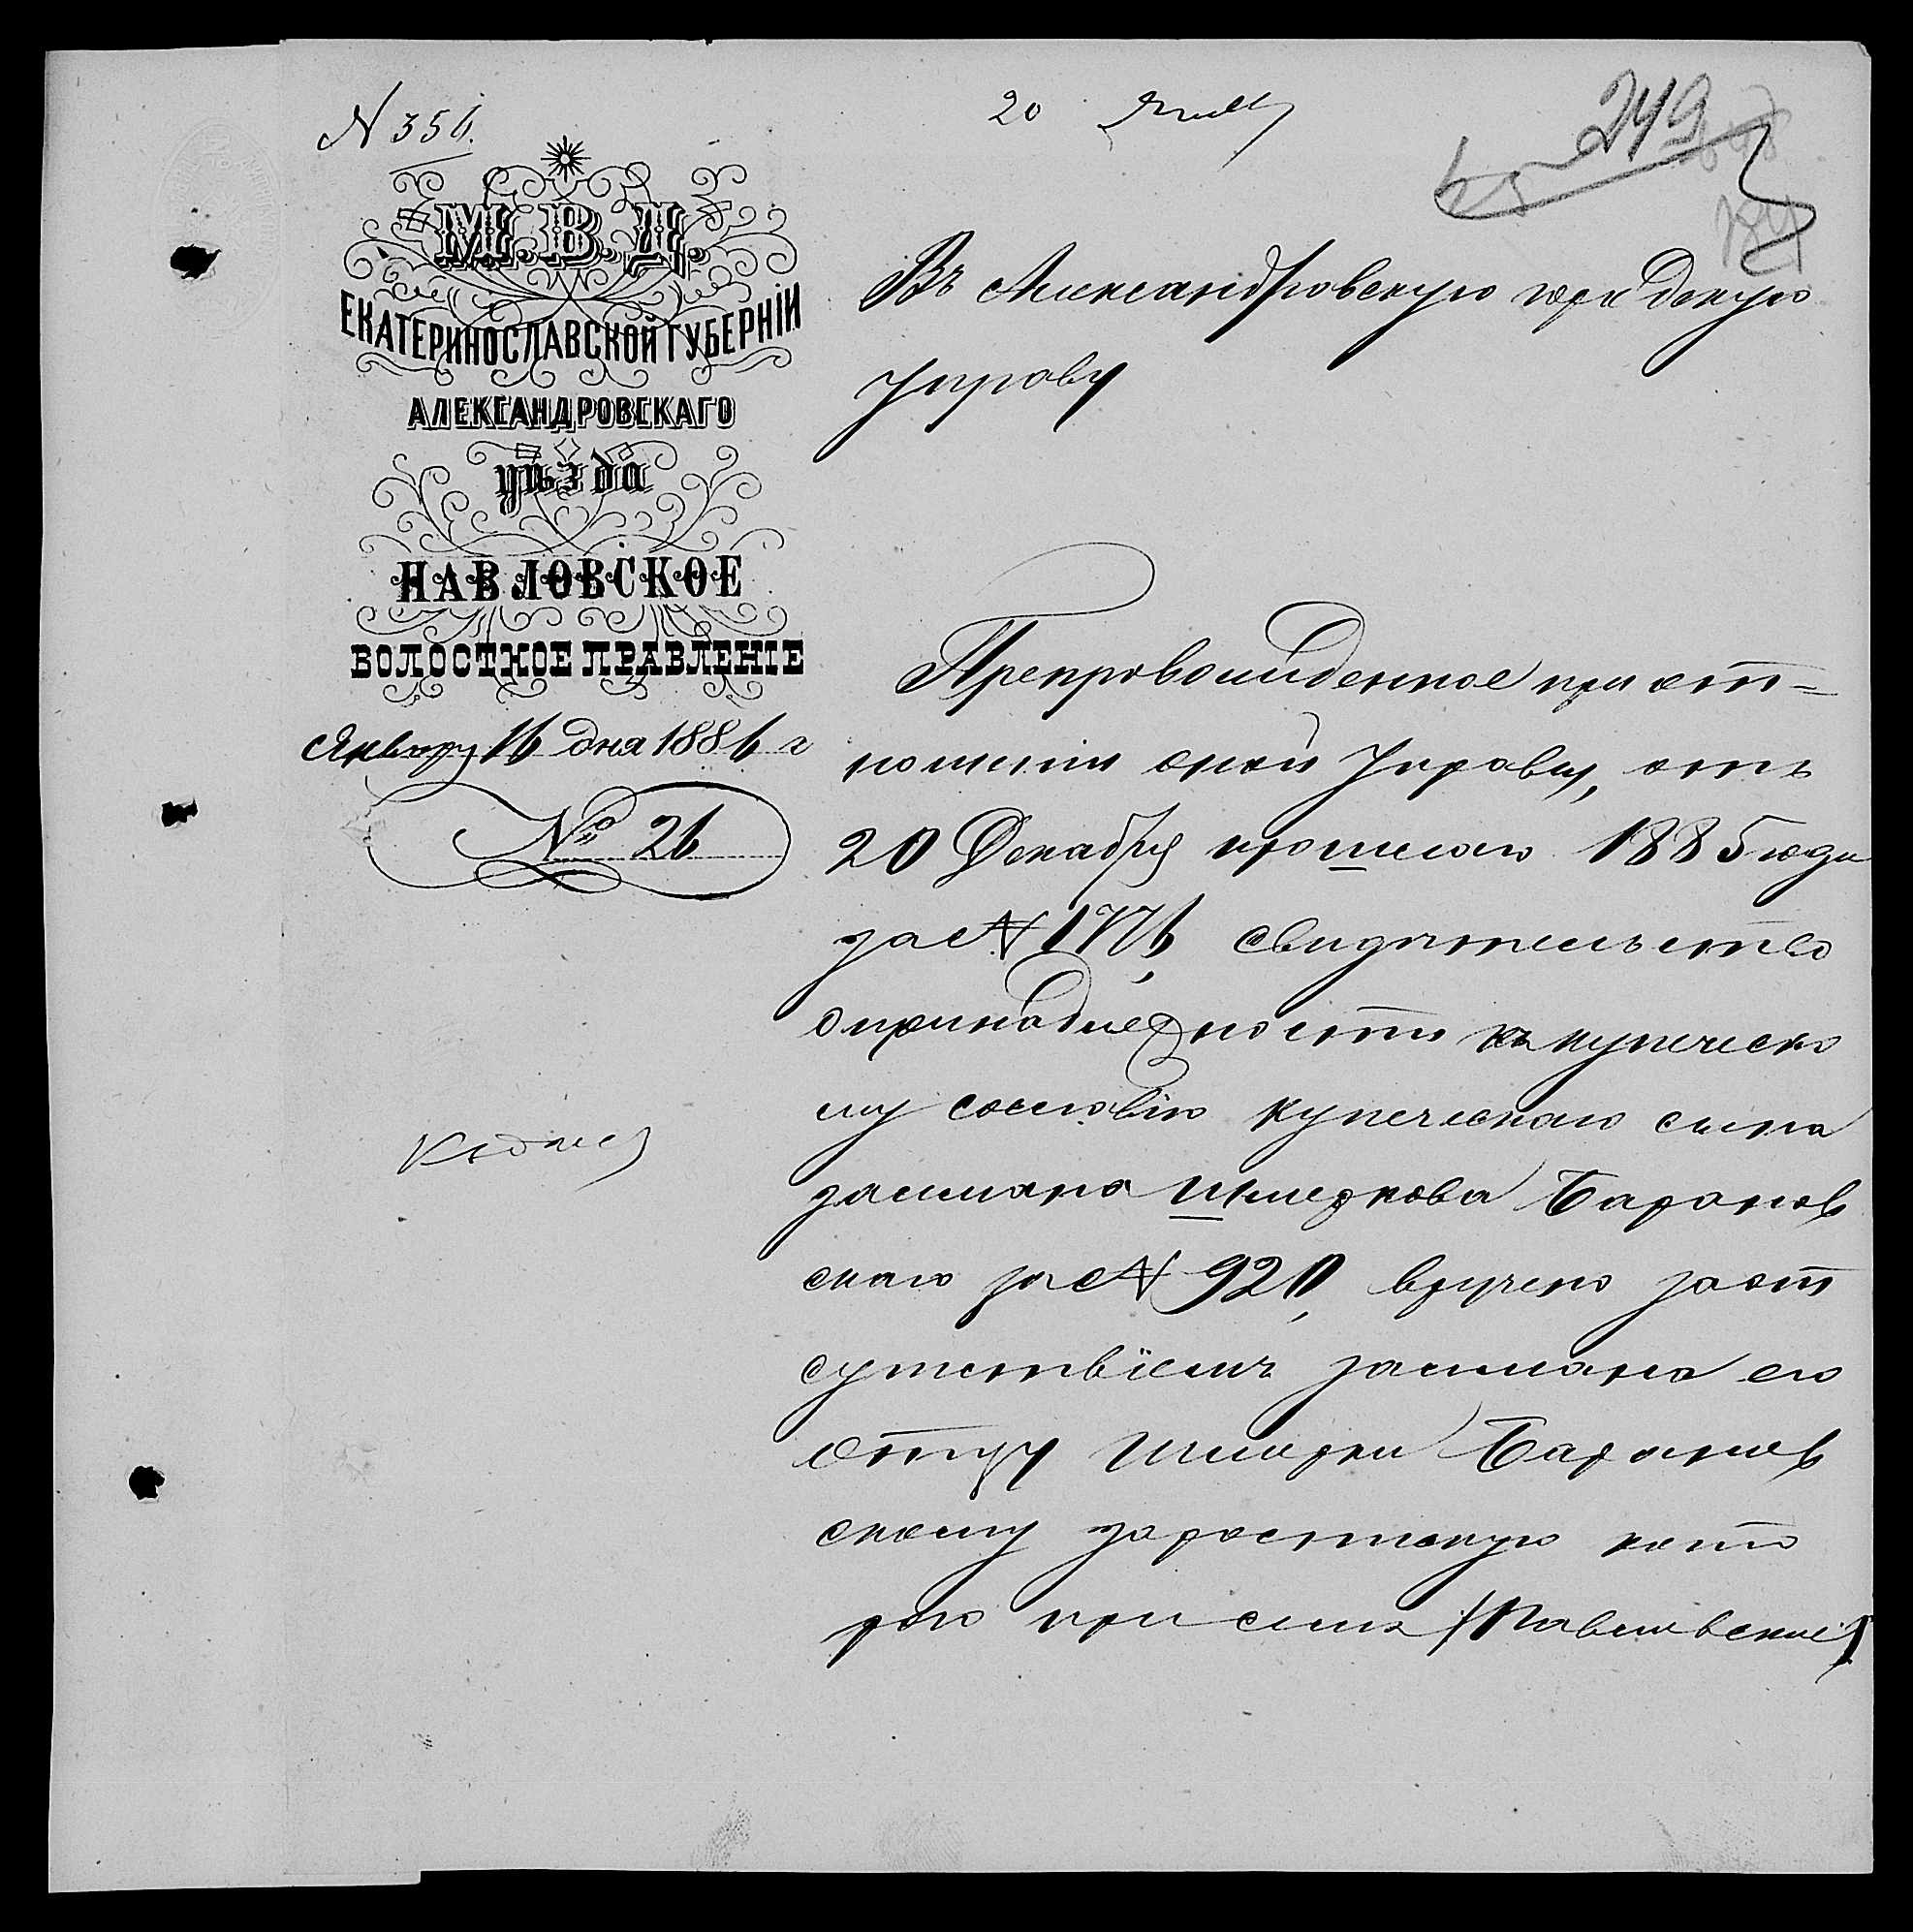 N 356.
20 Янв
249
М.В.Д.
ЕКАТЕРИНОСЛАВСКОЙ ГУБЕРНІИ
АЛЕКСАНДРОВСКАГО
уѣзда
ПАВЛОВСКОЕ
ВОЛОСТНОЕ ПРАВЛЕНІЕ
Января 16 дня 1886 г
№ 26
Къ дѣлу
Въ Александровскую городскую
Управу
Препровожденное при от-
ношеніи оной Управы, отъ
20 Декабря прошлаго 1885 года
за № 1776, свидѣтельство
о принадлежности къ купеческо
му сословію купеческаго сына
Залмана Шмеркова Баранов
скаго за № 920, вручено за от
сутствіемъ Залмана его
отцу Шмерки Баранов
скому за росписку кото
рою при семъ (Павловское)